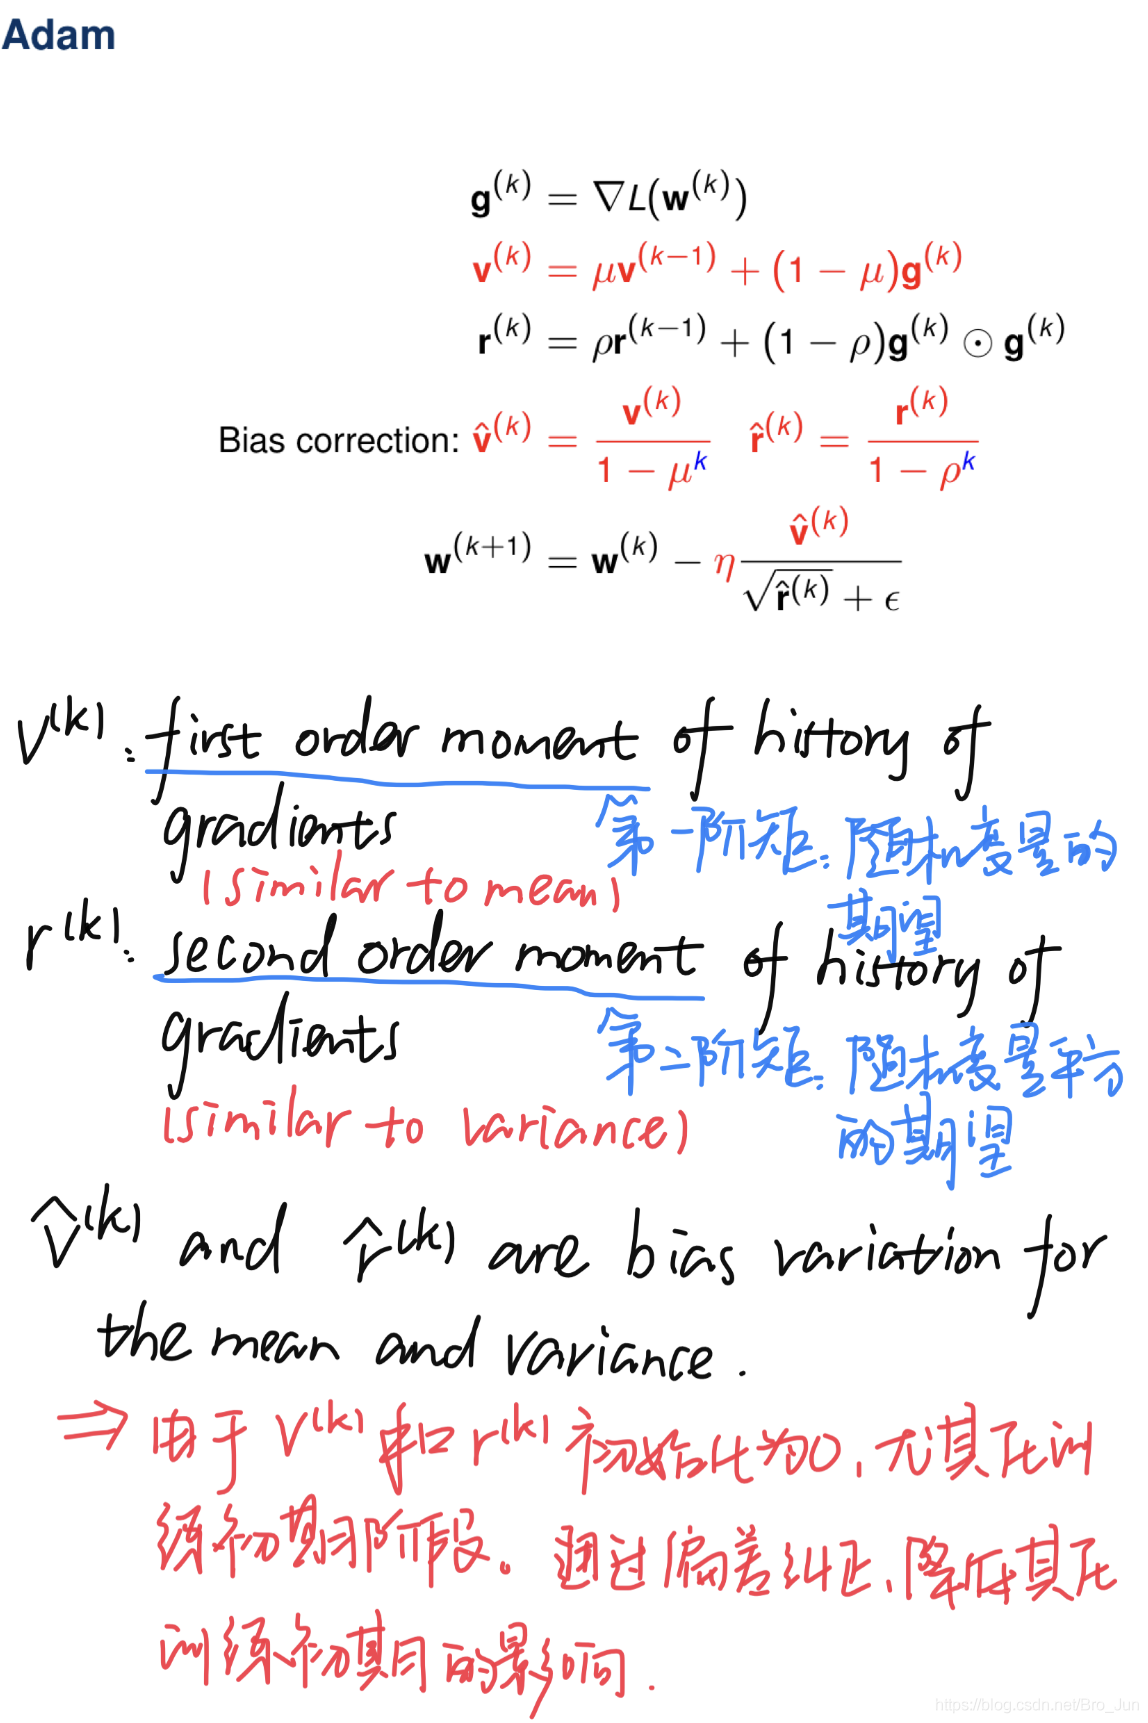 Adam
g^(k) = ∇L(w^(k))
v^(k) = μv^(k−1) + (1 − μ)g^(k)
r^(k) = ρr^(k−1) + (1 − ρ)g^(k) ⊙ g^(k)
Bias correction: v̂^(k) = v^(k) / (1 − μ^k)   r̂^(k) = r^(k) / (1 − ρ^k)
w^(k+1) = w^(k) − η v̂^(k) / (√r̂^(k) + ϵ)
v^(k): first order moment of history of
gradients
第一阶矩: 随机变量的
期望
(similar to mean)
r^(k): second order moment of history of
gradients
第二阶矩: 随机变量平方
的期望
(similar to variance)
v̂^(k) and r̂^(k) are bias variation for
the mean and variance.
⇒ 由于 v^(k) 和 r^(k) 初始化为0, 尤其在训
练初期阶段。通过偏差纠正, 降低其在
训练初期的影响.
https://blog.csdn.net/Bro_Jun